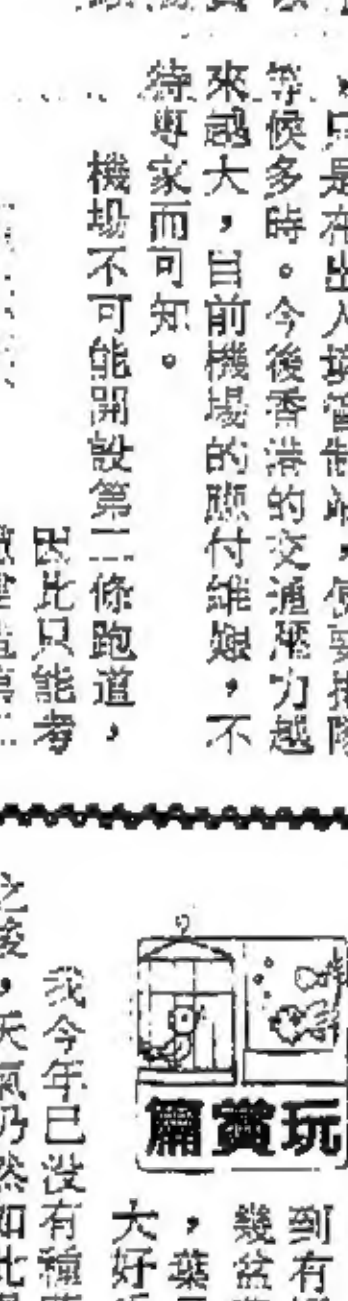 ，只是在出入境管制站，便要排隊
等候多時。今後香港的交通壓力越
來越大，目前機場的應付維艱，不
待專家而可知。
機場不可能開設第二條跑道，
因此只能考
玩賞篇
到有
幾盆
，葉
大好
我今年已沒有種
之後，天氣仍然如此